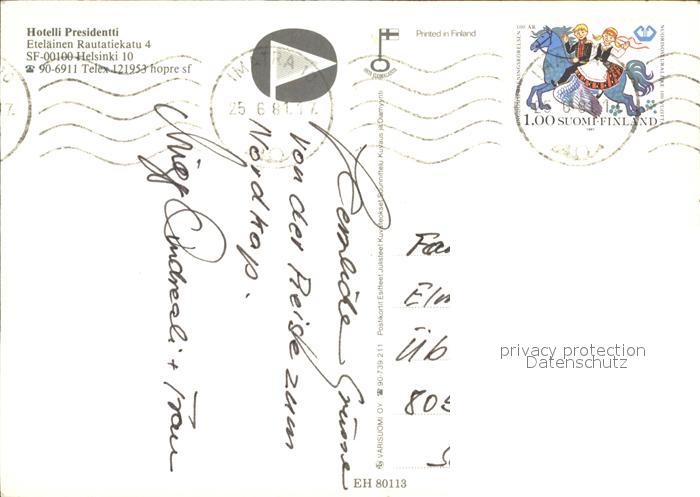 Hotelli Presidentti
Eteläinen Rautatiekatu 4
SF-00100 Helsinki 10
☎ 90-6911 Telex 121953 hopre sf
Printed in Finland
IMATRA 10
25.6.81.17.
1,00 SUOMI-FINLAND
1981
Herzliche Grüsse
von der Reise zum
Nordkap.
Andreoli + Frau
Postikortit Esitteet Julisteet Kuvateokset Suunnittelu Kuvaus ja Dianvyynti
VARISUOMI OY ☎ 90-739 211
Fa
El
Üb
805
privacy protection
Datenschutz
EH 80113